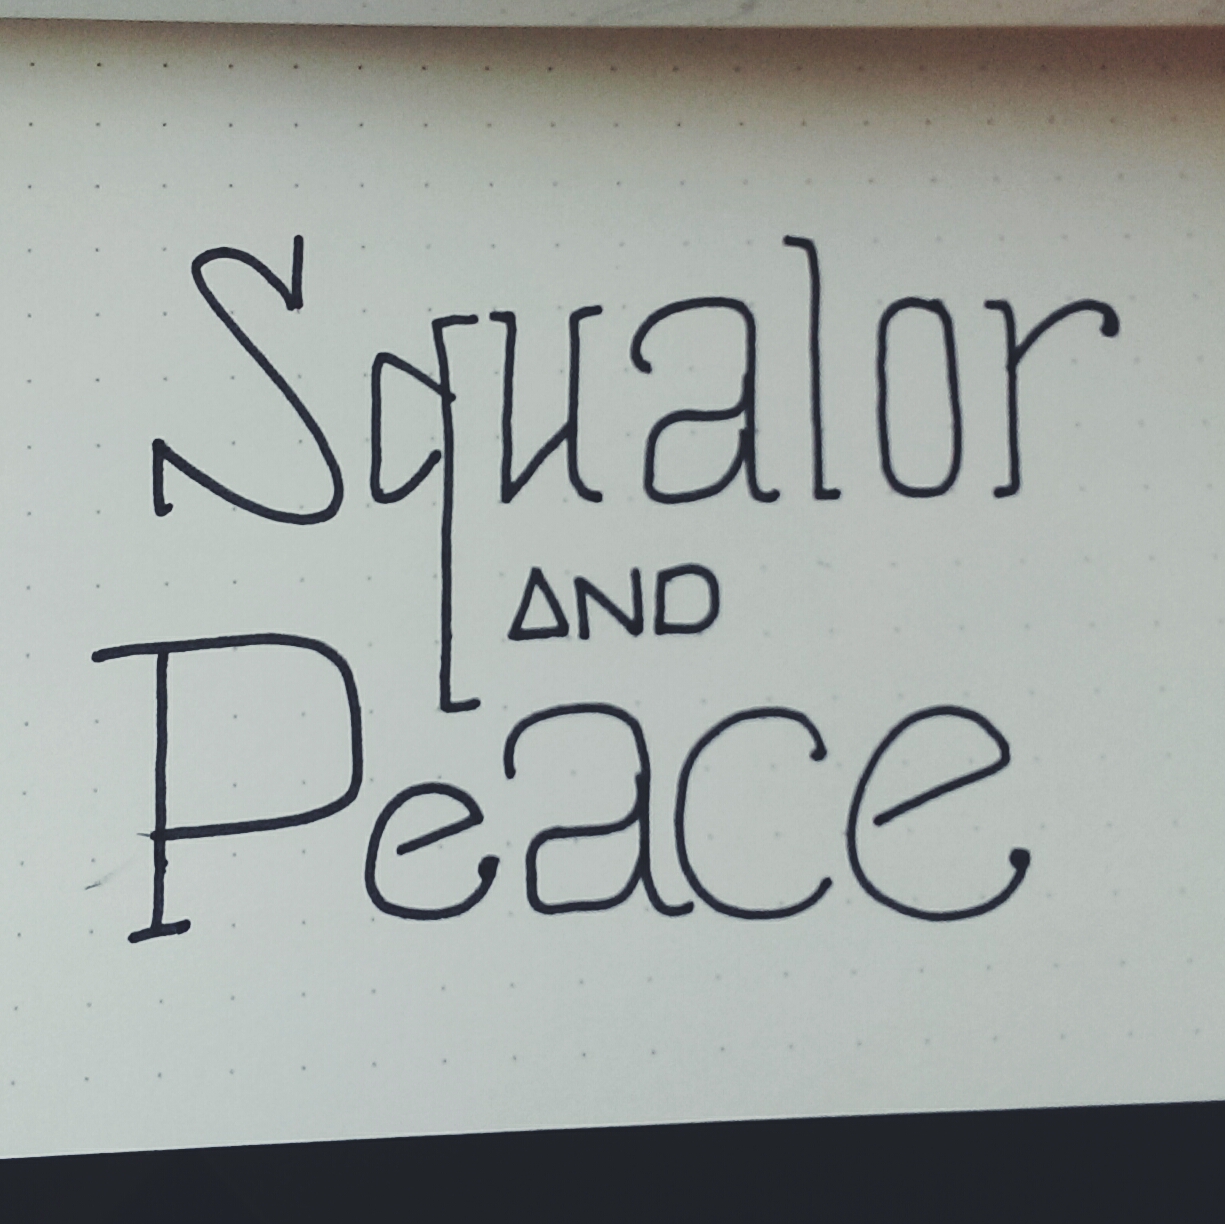 Squalor
AND
Peace